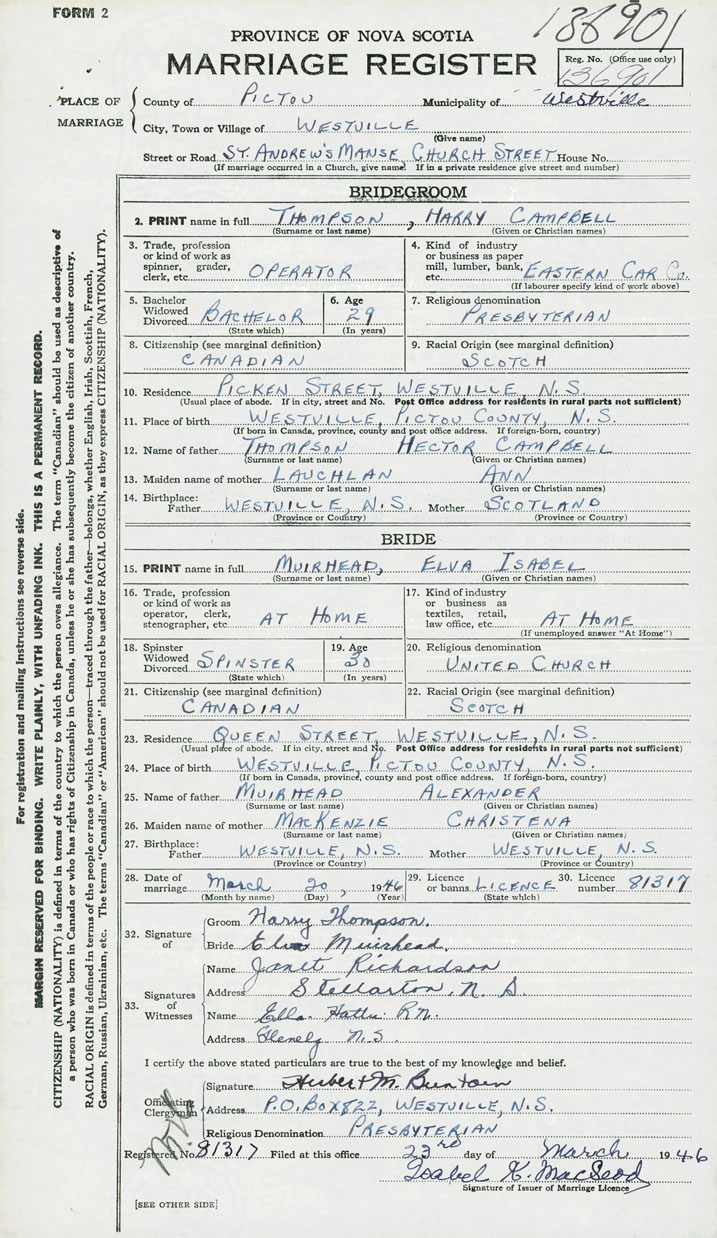 FORM 2
136901
PROVINCE OF NOVA SCOTIA
MARRIAGE REGISTER
Reg. No. (Office use only)
136901
PLACE OF MARRIAGE
County of PICTOU Municipality of Westville
City, Town or Village of WESTVILLE
(Give name)
Street or Road ST. ANDREW'S MANSE, CHURCH STREET House No.
(If marriage occurred in a Church, give name. If in a private residence give street and number)
BRIDEGROOM
2. PRINT name in full THOMPSON, HARRY CAMPBELL
(Surname or last name) (Given or Christian names)
3. Trade, profession or kind of work as spinner, grader, clerk, etc. OPERATOR
4. Kind of industry or business as paper mill, lumber, bank, etc. EASTERN CAR Co.
(If labourer specify kind of work above)
5. Bachelor Widowed Divorced BACHELOR
(State which)
6. Age 29
(In years)
7. Religious denomination
PRESBYTERIAN
8. Citizenship (see marginal definition)
CANADIAN
9. Racial Origin (see marginal definition)
SCOTCH
10. Residence PICKEN STREET, WESTVILLE, N.S.
(Usual place of abode. If in city, street and No. Post Office address for residents in rural parts not sufficient)
11. Place of birth WESTVILLE, PICTOU COUNTY, N.S.
(If born in Canada, province, county and post office address. If foreign-born, country)
12. Name of father THOMPSON HECTOR CAMPBELL
(Surname or last name) (Given or Christian names)
13. Maiden name of mother LAUCHLAN ANN
(Surname or last name) (Given or Christian names)
14. Birthplace:
Father WESTVILLE, N.S. Mother SCOTLAND
(Province or Country) (Province or Country)
BRIDE
15. PRINT name in full MUIRHEAD, ELVA ISABEL
(Surname or last name) (Given or Christian names)
16. Trade, profession or kind of work as operator, clerk, stenographer, etc. AT HOME
17. Kind of industry or business as textiles, retail, law office, etc. AT HOME
(If unemployed answer "At Home")
18. Spinster Widowed Divorced SPINSTER
(State which)
19. Age 30
(In years)
20. Religious denomination
UNITED CHURCH
21. Citizenship (see marginal definition)
CANADIAN
22. Racial Origin (see marginal definition)
SCOTCH
23. Residence QUEEN STREET, WESTVILLE, N.S.
(Usual place of abode. If in city, street and No. Post Office address for residents in rural parts not sufficient)
24. Place of birth WESTVILLE, PICTOU COUNTY, N.S.
(If born in Canada, province, county and post office address. If foreign-born, country)
25. Name of father MUIRHEAD ALEXANDER
(Surname or last name) (Given or Christian names)
26. Maiden name of mother MACKENZIE CHRISTENA
(Surname or last name) (Given or Christian names)
27. Birthplace:
Father WESTVILLE, N.S. Mother WESTVILLE, N.S.
(Province or Country) (Province or Country)
28. Date of marriage March 20, 1946
(Month by name) (Day) (Year)
29. Licence or banns LICENCE
(State which)
30. Licence number 81317
32. Signature of
Groom Harry Thompson.
Bride Elva Muirhead.
33. Signatures of Witnesses
Name Janet Richardson
Address Stellarton, N.S.
Name Ella R.N.
Address N.S.
I certify the above stated particulars are true to the best of my knowledge and belief.
Officiating Clergyman
Signature M.
Address P.O. BOX 822, WESTVILLE, N.S.
Religious Denomination PRESBYTERIAN
Registered No. 81317 Filed at this office 23rd day of March 1946
Isabel K. MacLeod
Signature of Issuer of Marriage Licence
[SEE OTHER SIDE]
For registration and mailing instructions see reverse side.
MARGIN RESERVED FOR BINDING. WRITE PLAINLY, WITH UNFADING INK. THIS IS A PERMANENT RECORD.
CITIZENSHIP (NATIONALITY) is defined in terms of the country to which the person owes allegiance. The term "Canadian" should be used as descriptive of
a person who was born in Canada or who has rights of Citizenship in Canada, unless he or she has subsequently become the citizen of another country.
RACIAL ORIGIN is defined in terms of the people or race to which the person—traced through the father—belongs, whether English, Irish, Scottish, French,
German, Russian, Ukrainian, etc. The terms "Canadian" or "American" should not be used for RACIAL ORIGIN, as they express CITIZENSHIP (NATIONALITY).